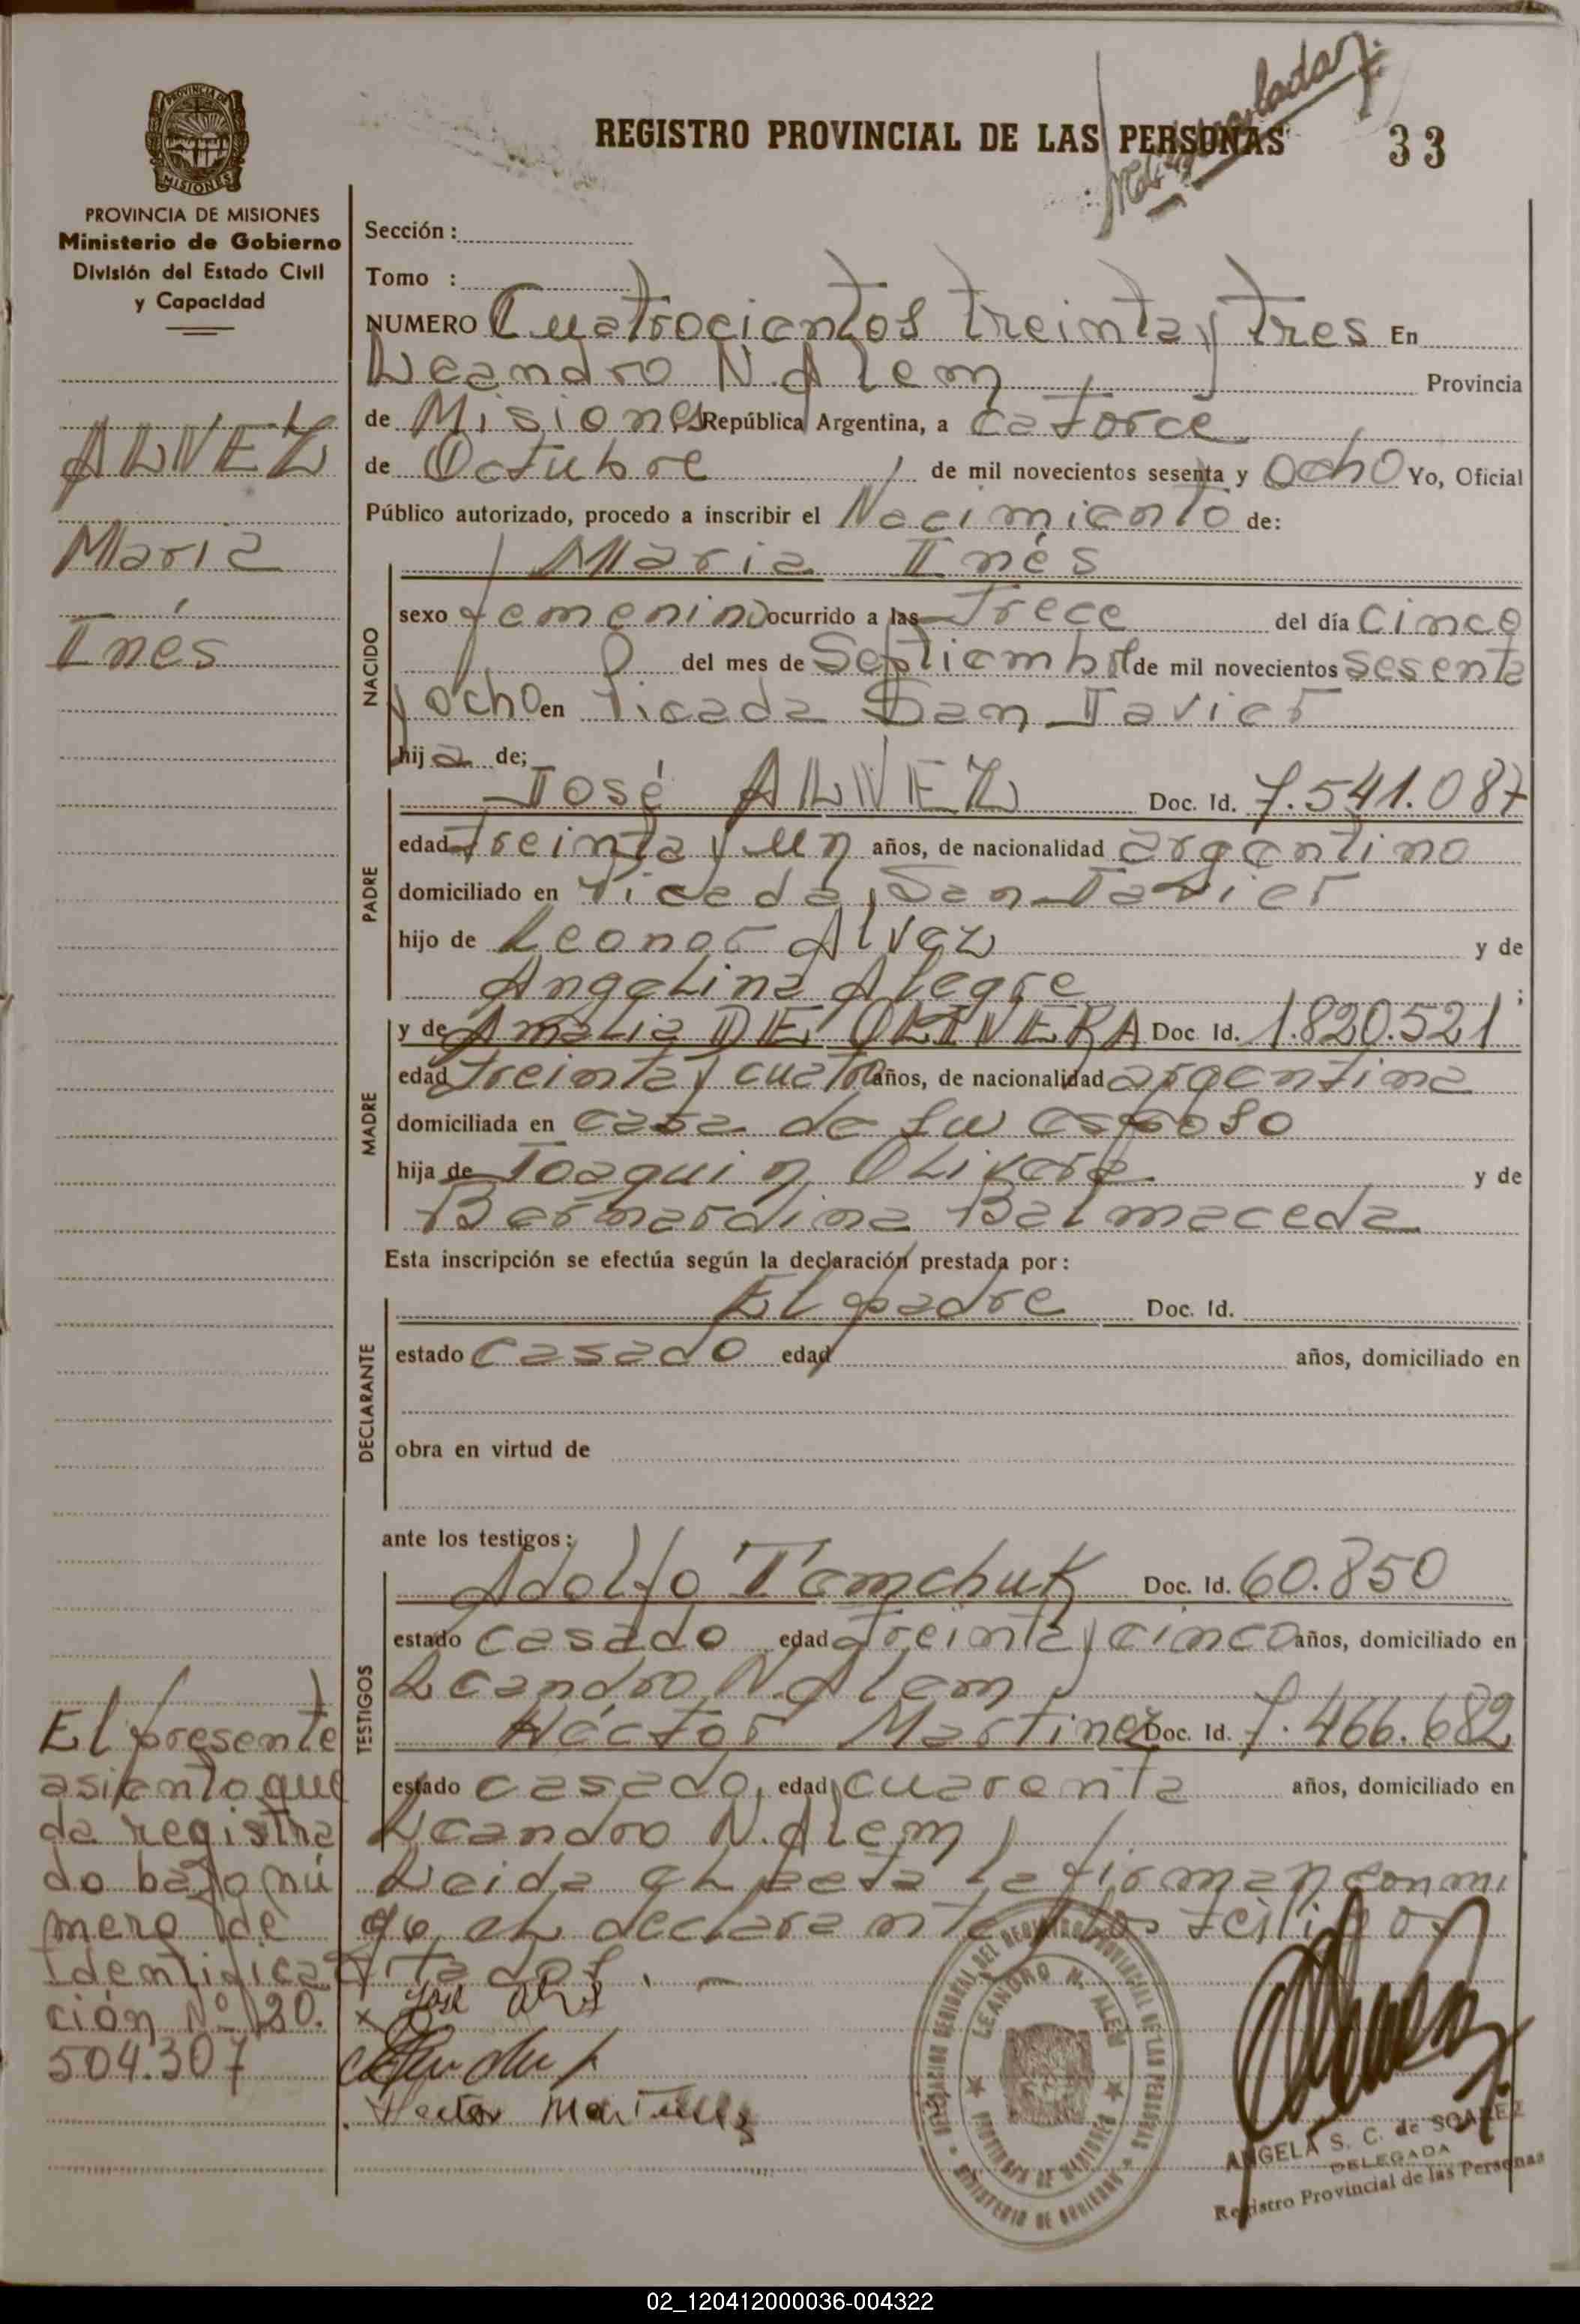 REGISTRO PROVINCIAL DE LAS PERSONAS
33
PROVINCIA DE MISIONES
Ministerio de Gobierno
División del Estado Civil
y Capacidad
ALVEZ
Maria
Inés
Sección :
Tomo :
NUMERO Cuatrocientos treinta y tres En
Leandro N. Alem Provincia
de Misiones República Argentina, a catorce
de Octubre de mil novecientos sesenta y ocho Yo, Oficial
Público autorizado, procedo a inscribir el Nacimiento de:
NACIDO
Maria Inés
sexo femenino ocurrido a las trece del día cinco
del mes de Septiembre de mil novecientos sesenta
y ocho en Picada San Javier
hija de;
PADRE
José ALVEZ Doc. Id. 7.541.087
edad treinta y un años, de nacionalidad argentino
domiciliado en Picada San Javier
hijo de Leonor Alvez y de
Angelina Alegre ;
MADRE
y de Amalia DE OLIVERA Doc. Id. 1.820.521
edad treinta y cuatro años, de nacionalidad argentina
domiciliada en casa de su esposo
hija de Joaquin Olivera y de
Bernardina Balmaceda
Esta inscripción se efectúa según la declaración prestada por :
DECLARANTE
El padre Doc. Id.
estado casado edad años, domiciliado en
obra en virtud de
ante los testigos :
TESTIGOS
Adolfo Temchuk Doc. Id. 60.850
estado casado edad treinta y cinco años, domiciliado en
Leandro N. Alem
Héctor Martinez Doc. Id. 7.466.682
estado casado, edad cuarenta años, domiciliado en
Leandro N. Alem
Leida el acta la firman conmi
go el declarante y los testigos
citados. -
El presente
asiento que
da registra
do bajo nú
mero de
Identifica
ción Nº 20.
504.307
José
Hector Martinez
DELEGACION GENERAL DEL REGISTRO PROVINCIAL DE LAS PERSONAS
LEANDRO N. ALEM
PROVINCIA DE MISIONES
MINISTERIO DE GOBIERNO
ANGELA S. C. de SOAREZ
DELEGADA
Registro Provincial de las Personas
02_120412000036-004322